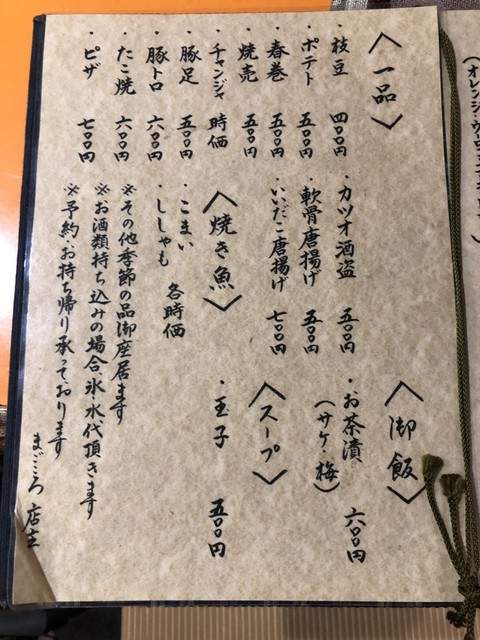 (オレンジ・ウーロン
〈一品〉
・枝豆 四〇〇円
・ポテト 五〇〇円
・春巻 五〇〇円
・焼売 五〇〇円
・チャンジャ 時価
・豚足 五〇〇円
・豚トロ 六〇〇円
・たこ焼 六〇〇円
・ピザ 七〇〇円
・カツオ酒盗 五〇〇円
・軟骨唐揚げ 五〇〇円
・いいだこ唐揚げ 七〇〇円
〈焼き魚〉
・こまい
・ししゃも 各時価
〈御飯〉
・お茶漬 六〇〇円
(サケ・梅)
〈スープ〉
・玉子 五〇〇円
※その他季節の品御座居ます
※お酒類持ち込みの場合、氷、水代頂きます
※予約・お持ち帰り承っております
まごころ 店主